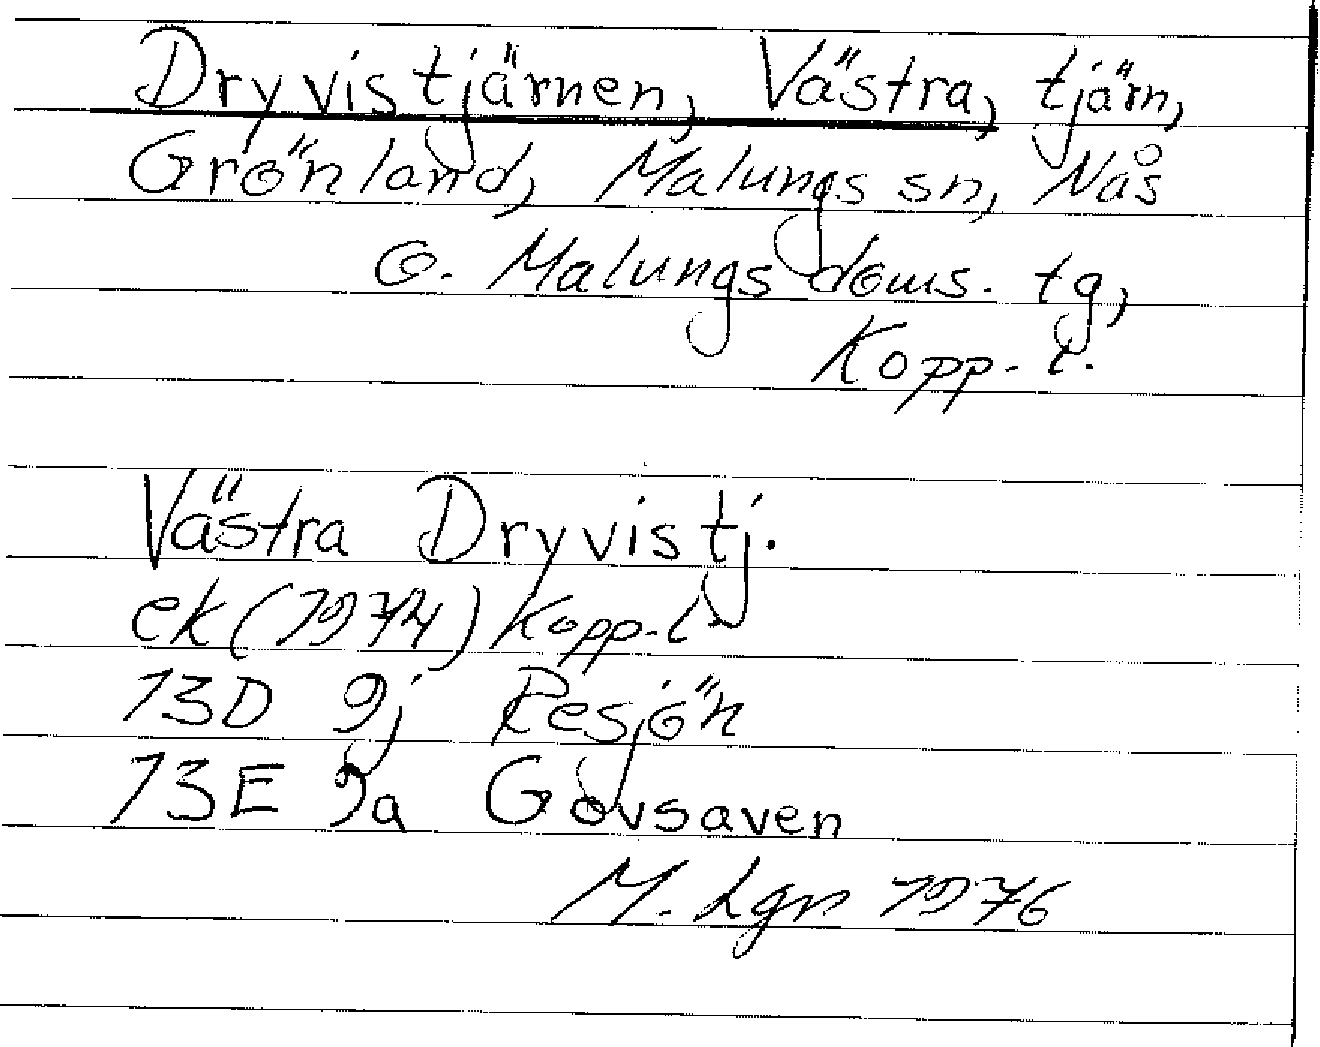 Dryvistjärnen, Västra, tjärn,
Grönland, Malungs sn, Nås
o. Malungs doms. tg,
Kopp. l.
Västra Dryvistj.
ek (1974) Kopp. l
13D 9j Resjön
13E 9a Govsaven
M. Lgn 1976